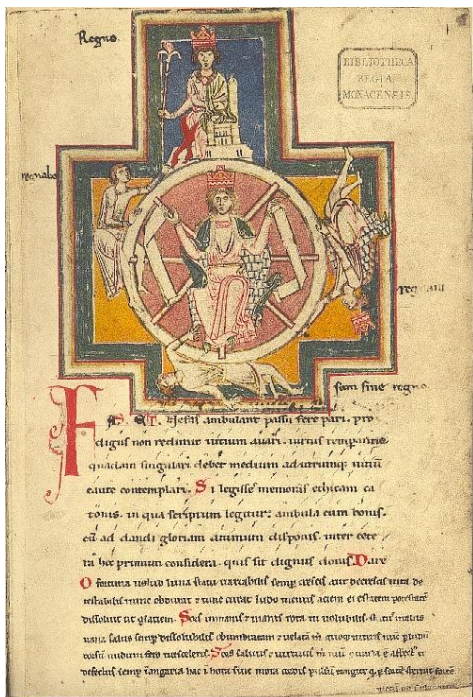 Regno.
BIBLIOTHECA
REGIA
MONACENSIS.
regnabo
regnaui
sum sine regno
ambulant passu fere pari. pro
digus non redimit uitium auari. uirtus temperantia
quadam singulari. debet medium adutrumq; uitiū
caute contemplari. Si legisse memoras ethicam ca
tonis. in qua scriptum legitur. ambula cum bonis.
cū ad dandi gloriam animum disponis. inter cete
ra hoc primum considera. quis sit dignus donis. Dare
O fortuna uelud luna statu uariabilis semp crescis aut decrescis uita de
testabilis nunc obdurat & tunc curat ludo mentis aciem egestatem potestatē
dissoluit ut glaciem. Sors immanis & inanis rota tu uolubilis status malus
uana salus semp dissolubilis obumbratam & uelatā niteris nunc p ludum
dorsū nudum fero tui sceleris. Sors salutis & uirtutis nunc affect' &
defectus semp inangaria hac i hora sine mora corde tangite sortē